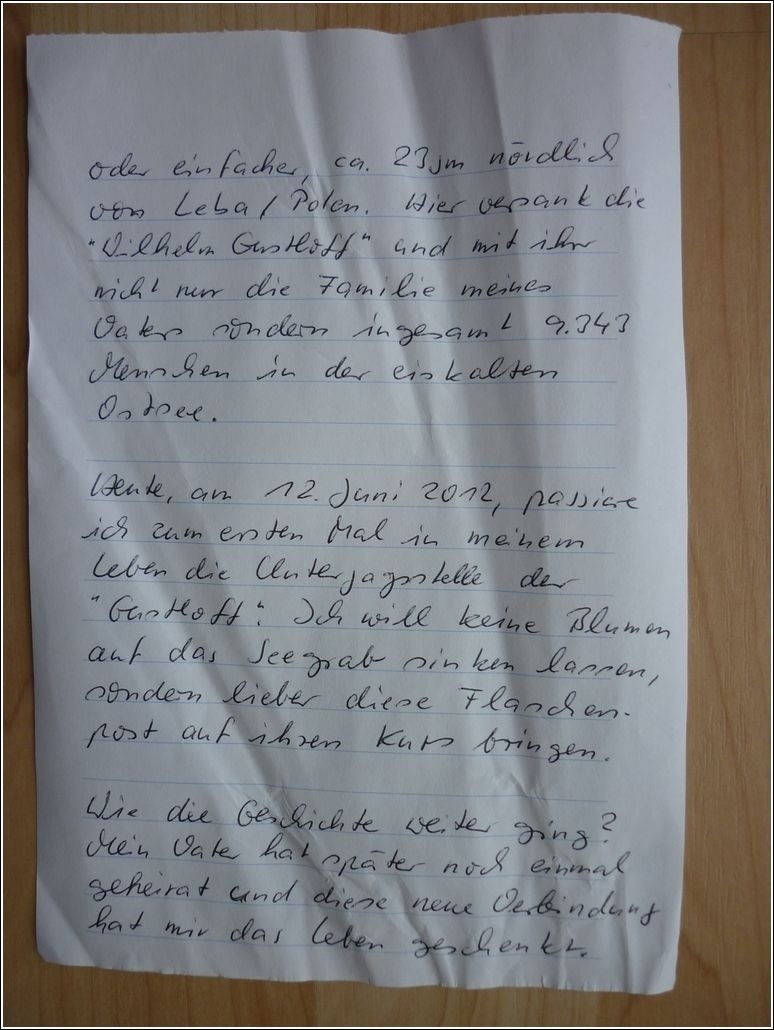 oder einfacher, ca. 23sm nördlich
von Leba / Polen. Hier versank die
"Wilhelm Gustloff" und mit ihr
nicht nur die Familie meines
Vaters sondern ingesamt 9.343
Menschen in der eiskalten
Ostsee.
Heute, am 12. Juni 2012, passiere
ich zum ersten Mal in meinem
Leben die Untergangsstelle der
"Gustloff". Ich will keine Blumen
auf das Seegrab sinken lassen,
sondern lieber diese Flaschen-
post auf ihren Kurs bringen.
Wie die Geschichte weiter ging?
Mein Vater hat später noch einmal
geheirat und diese neue Verbindung
hat mir das Leben geschenkt.